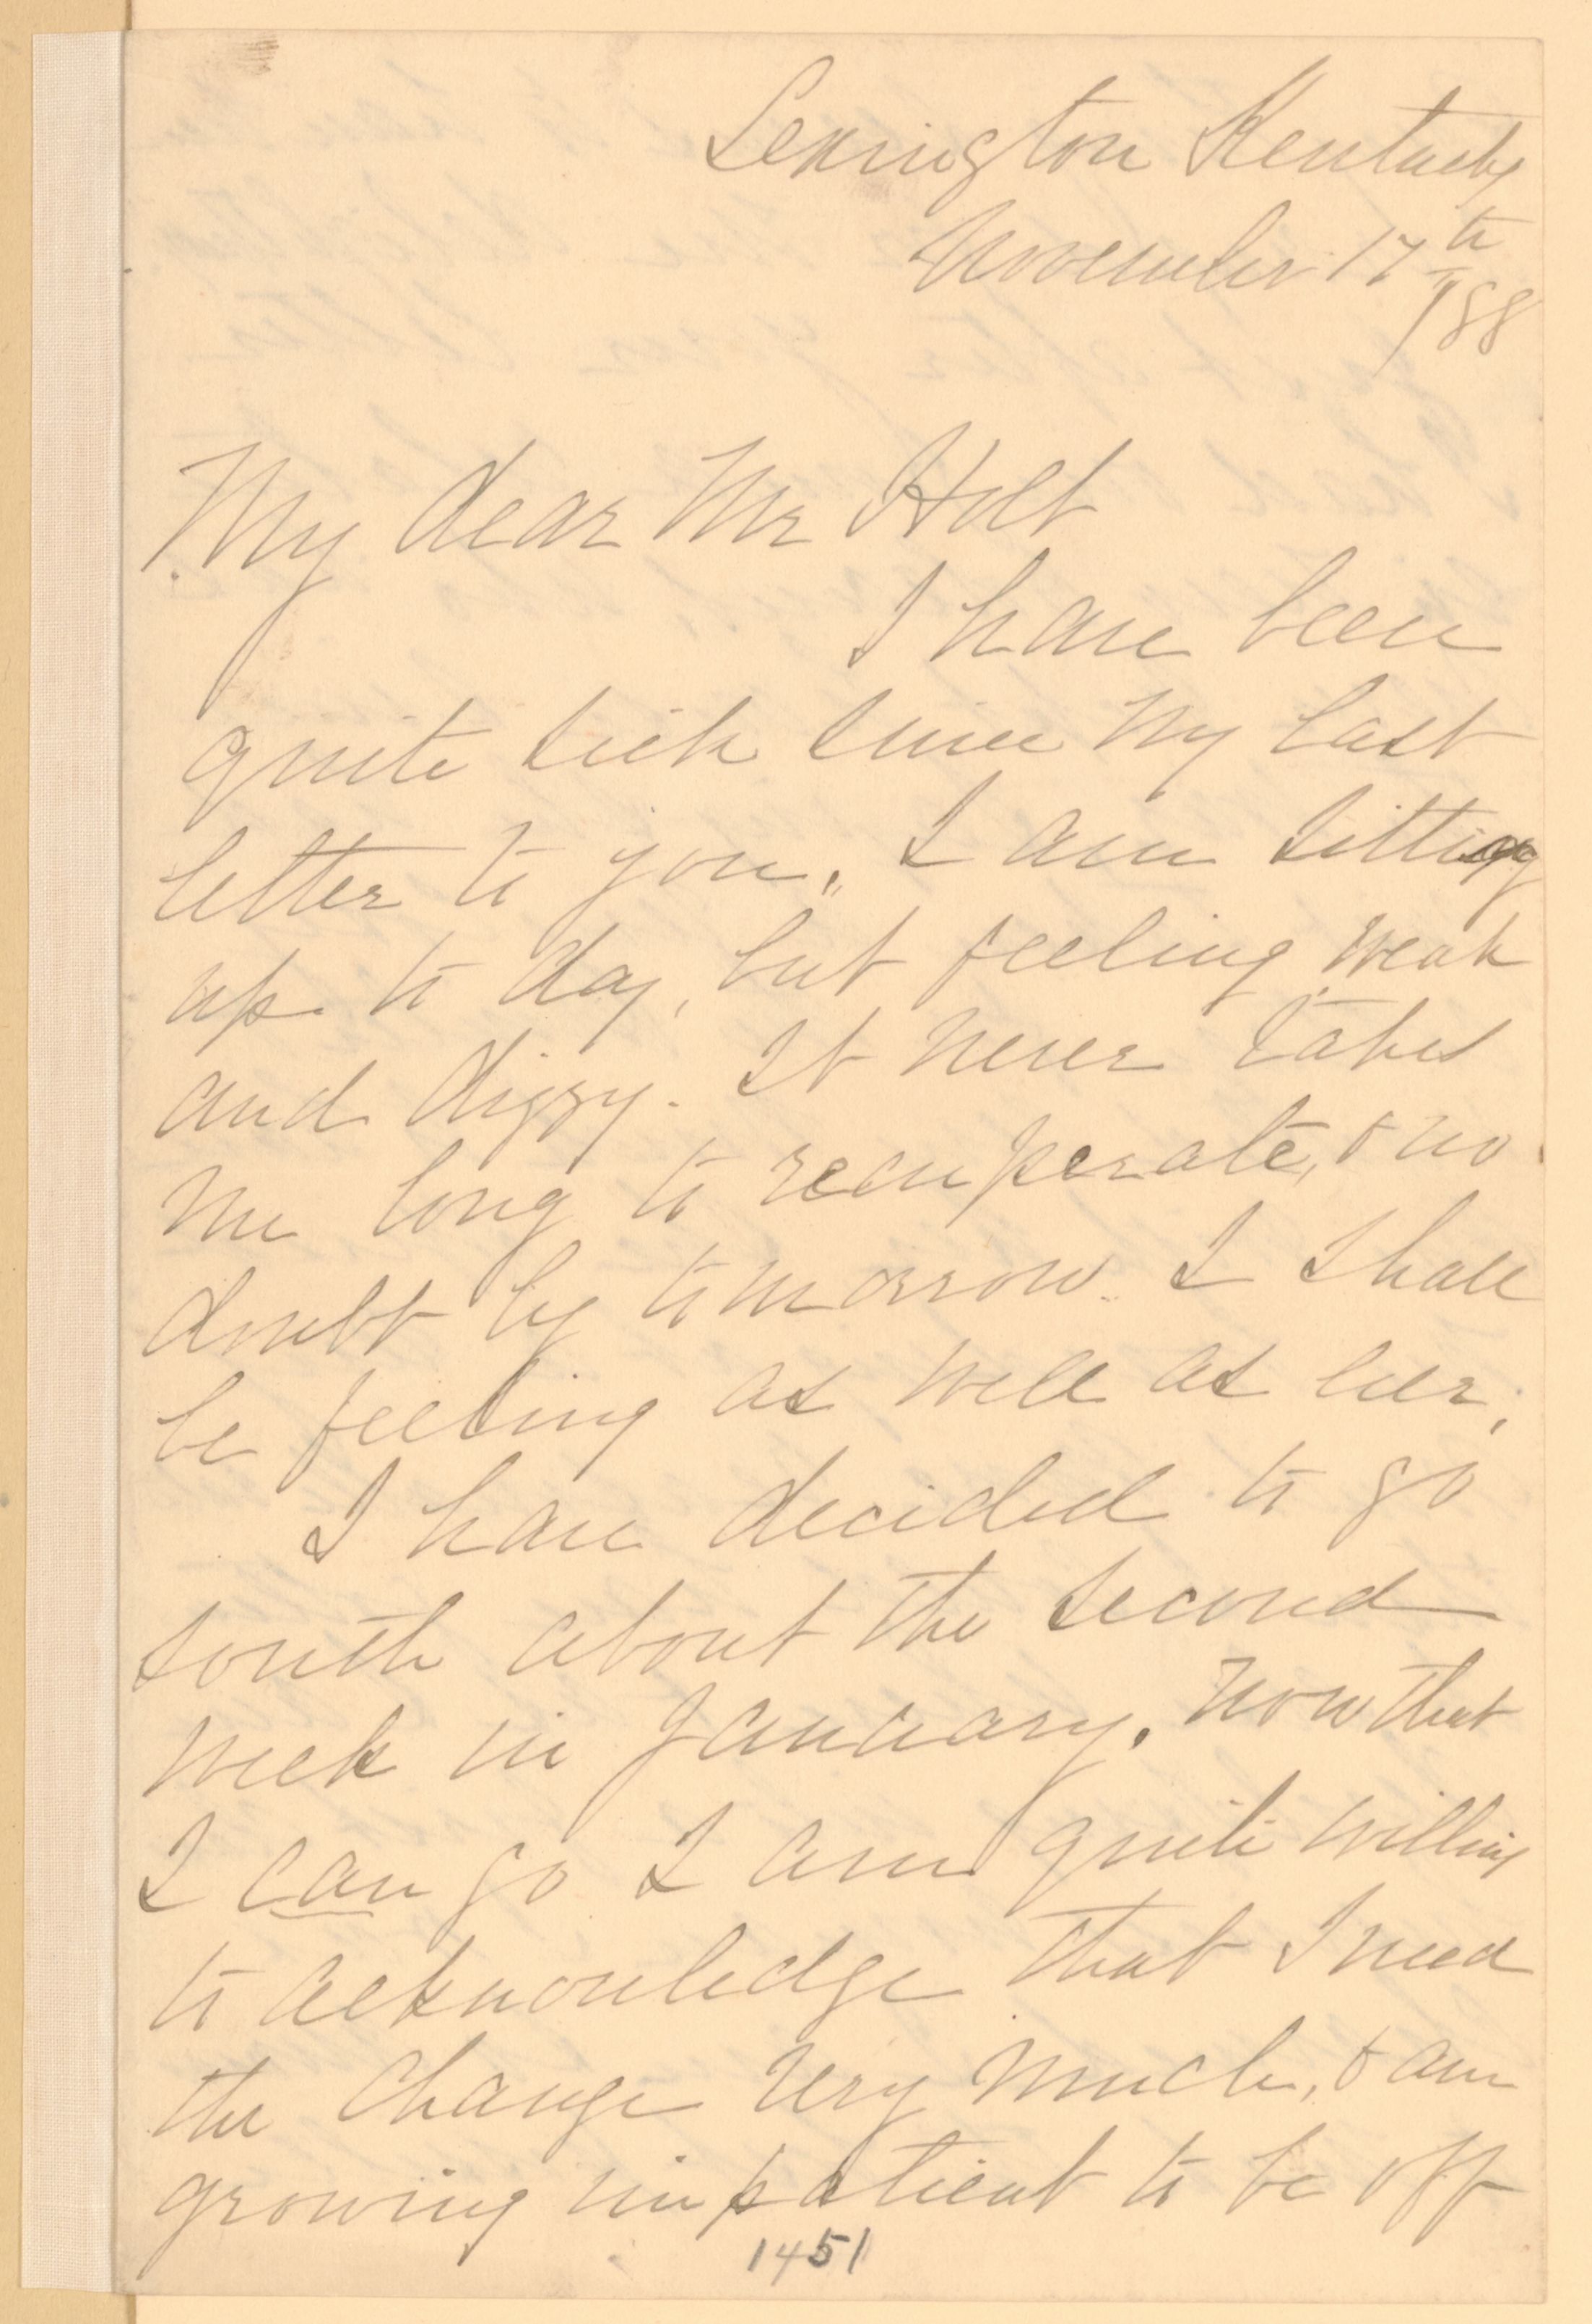 Lexington Kentucky
November 17th
/88
My dear Mr Holt
I have been
quite sick since my last
letter to you. I am sitting
up to day, but feeling weak
and dizzy. It never takes
me long to recuperate, & no
doubt by tomorrow I shall
be feeling as well as ever.
I have decided to go
south about the second
week in January. Now that
I can go I am quite willing
to acknowledge that I need
the change very much, & am
growing impatient to be off
1451